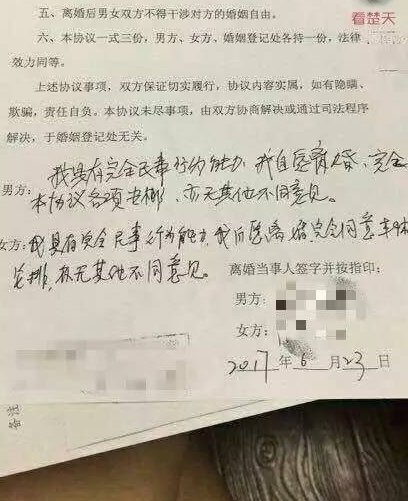 看楚天
五、离婚后男女双方不得干涉对方的婚姻自由。
六、本协议一式三份，男方、女方、婚姻登记处各持一份，法律
效力同等。
上述协议事项，双方保证切实履行，协议内容实属，如有隐瞒、
欺骗，责任自负。本协议未尽事项，由双方协商解决或通过司法程序
解决，于婚姻登记处无关。
我具有完全民事行为能力，我自愿离婚，完全
男方：本协议各项安排，亦无其他不同意见。
女方：我具有完全民事行为能力，我自愿离婚，完全同意本协
安排，亦无其他不同意见。
离婚当事人签字并按指印：
男方：
女方：
2017年6月23日
备注